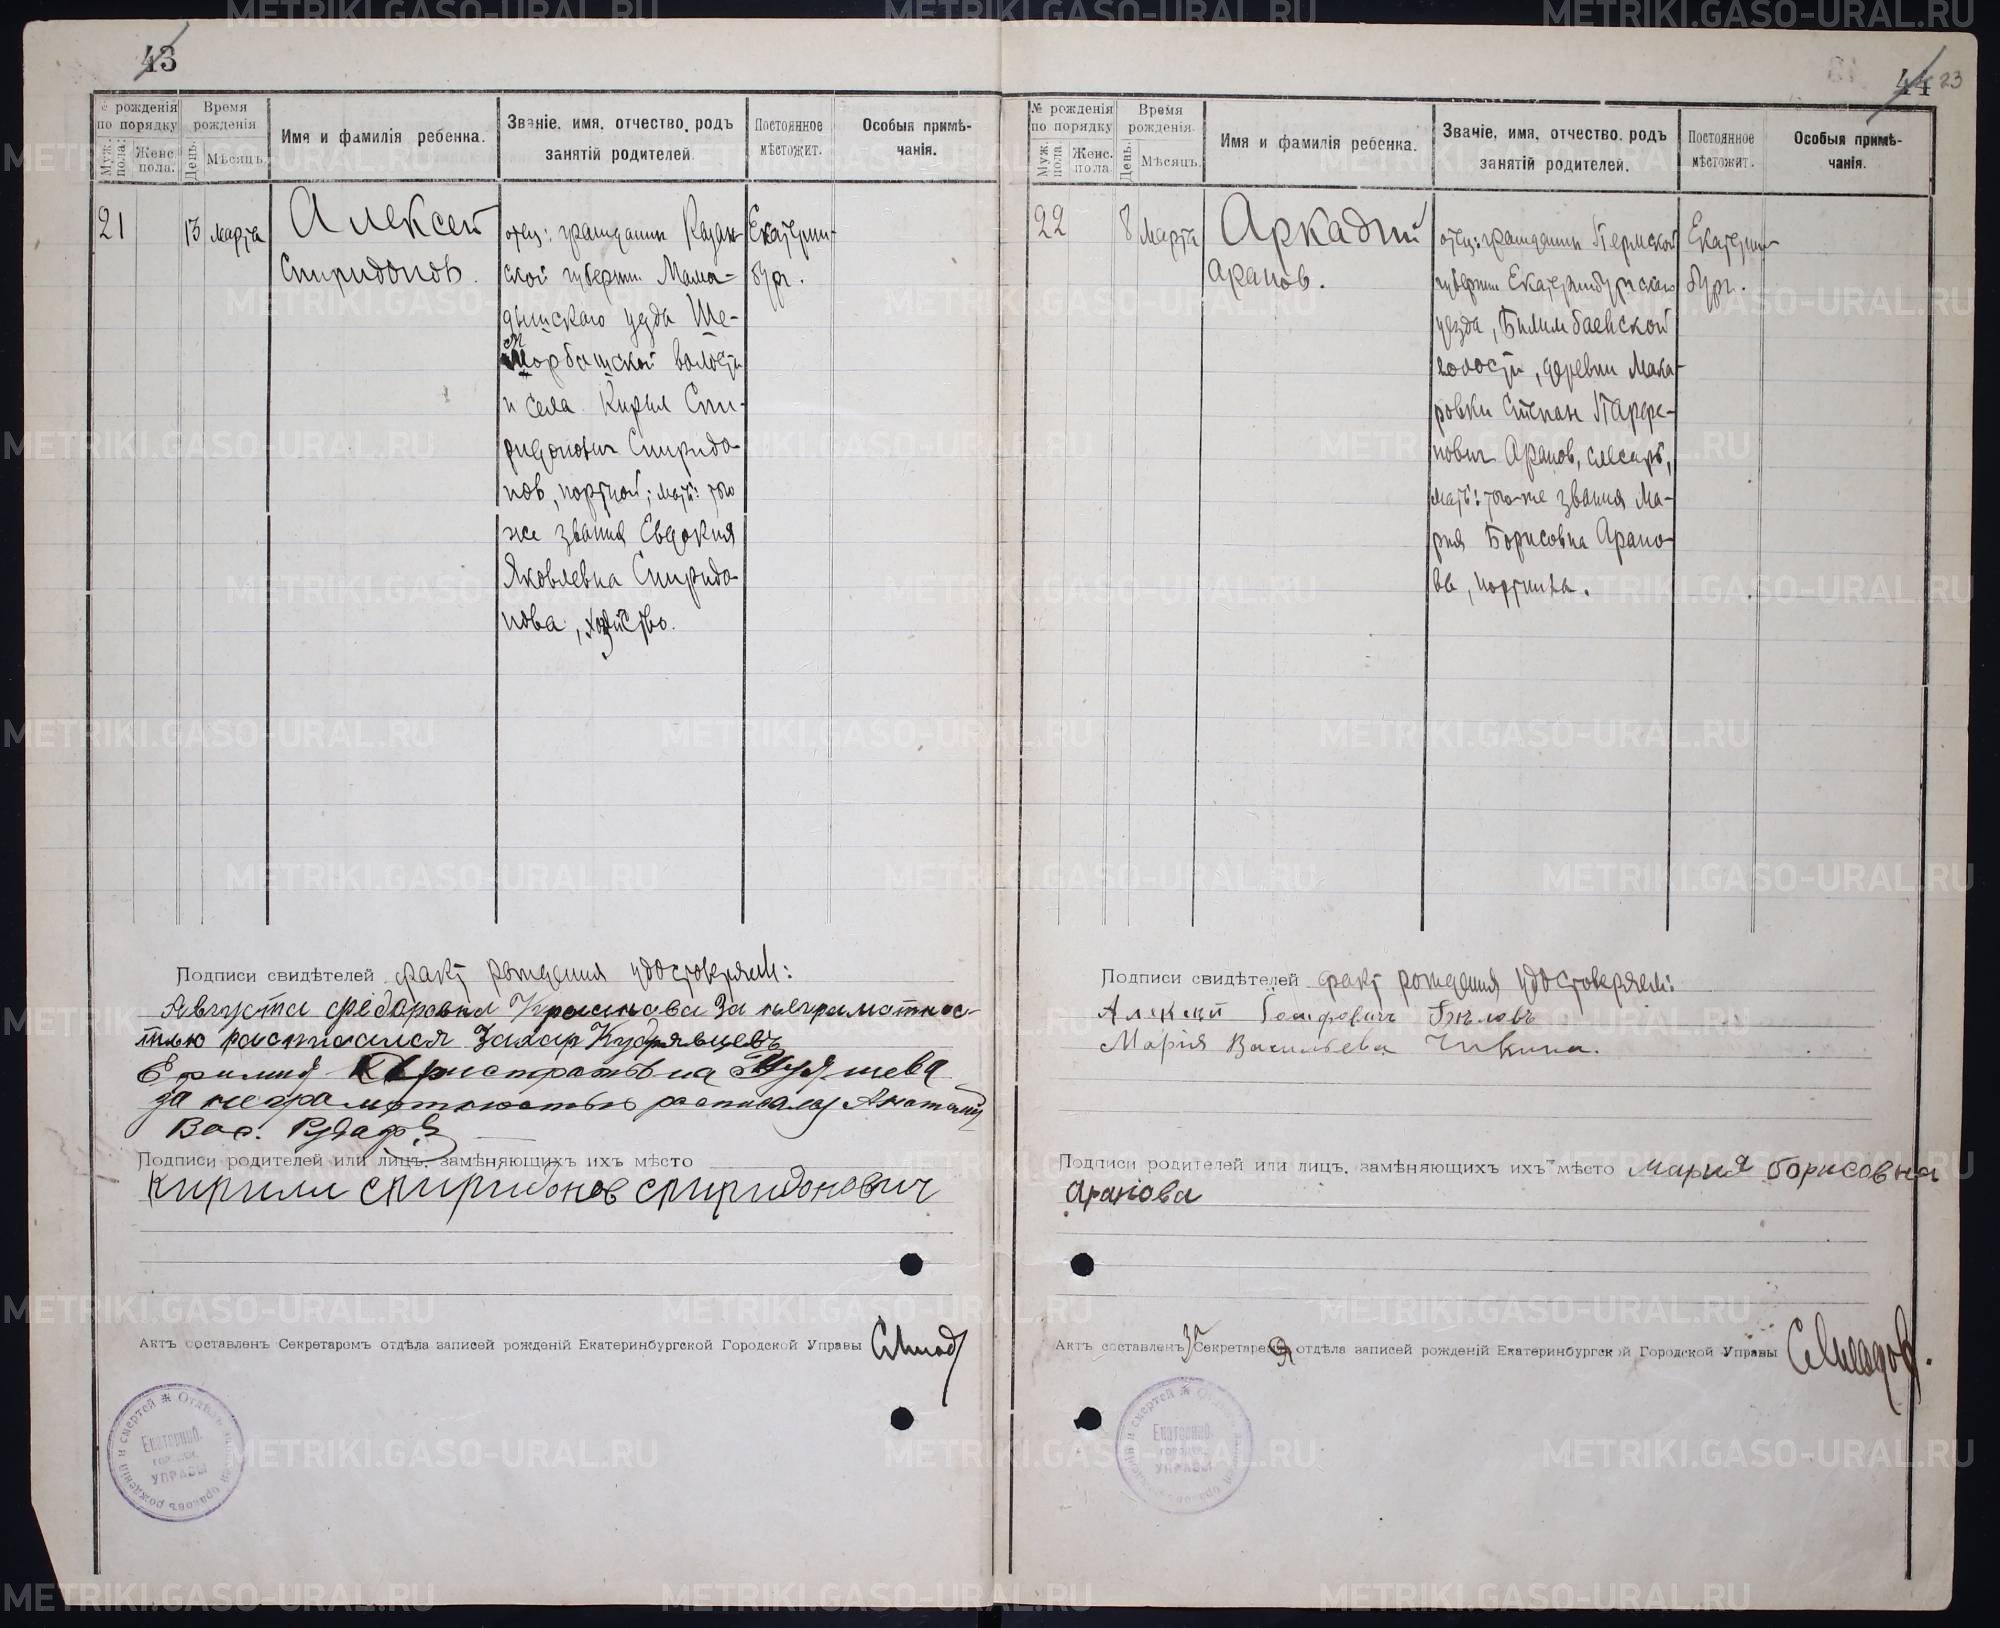 43
№ рожденія по порядку
Муж. пола.
Женс. пола.
Время рожденія
День.
Мѣсяцъ.
Имя и фамилія ребенка.
Званіе, имя, отчество, родъ
занятій родителей.
Постоянное
мѣстожит.
Особыя примѣ-
чанія.
21
13 Марта
Алексей
Спиридонов.
отец: гражданин Казан-
ской губернии Мама-
дышскаго уезда Ше-
морбашской волости
и села Кирил Спи-
ридонович Спиридо-
нов, портной; мать: того
же звания Евдокия
Яковлевна Спиридо-
нова, хозяйство.
Екатерин-
бург.
Подписи свидѣтелей факт рождения удостоверяем:
Августа Федоровна Краснова За неграмотнос-
тью расписался Захар Кудрявцевъ
Ефимия
за неграмотностью расписался Анатолий
Вас.
Подписи родителей или лицъ, замѣняющихъ ихъ мѣсто
Кирилл Спиридонов Спиридонович
Актъ составленъ Секретаромъ отдѣла записей рожденій Екатеринбургской Городской Управы
Екатеринб.
городск.
УПРАВЫ
44 23
№ рожденія
по порядку
Муж. пола.
Женс. пола.
Время
рожденія.
День.
Мѣсяцъ.
Имя и фамилія ребенка.
Званіе, имя, отчество, родъ
занятій родителей.
Постоянное
мѣстожит.
Особыя примѣ-
чанія.
22
8 Марта
Аркадий
Арапов.
отец: гражданин Пермской
губернии Екатеринбургскаго
уезда, Билимбаевской
волости, деревни Мака-
ровки Степан Парфе-
нович Арапов, слесарь,
мать: того-же звания Ма-
рия Борисовна Арапо-
ва, портниха.
Екатерин-
бург.
Подписи свидѣтелей факт рождения удостоверяем:
Алексей Бѣловъ
Мария Васильева Чикина.
Подписи родителей или лицъ, замѣняющихъ ихъ мѣсто Мария Борисовна
Арапова
Актъ составленъ за Секретаря отдѣла записей рожденій Екатеринбургской Городской Управы
Екатеринб.
городск.
УПРАВЫ
METRIKI.GASO-URAL.RU